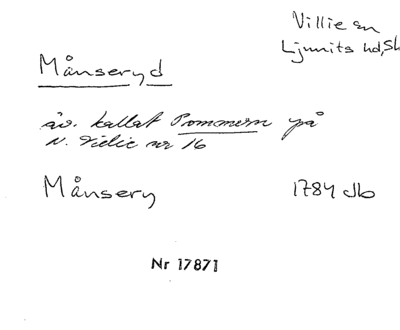 Villie sn
Ljunits hd, Sk
Månseryd
äv. kallat Pommern på
N. Villie nr 16
Månsery 1784 Jb
Nr 17871